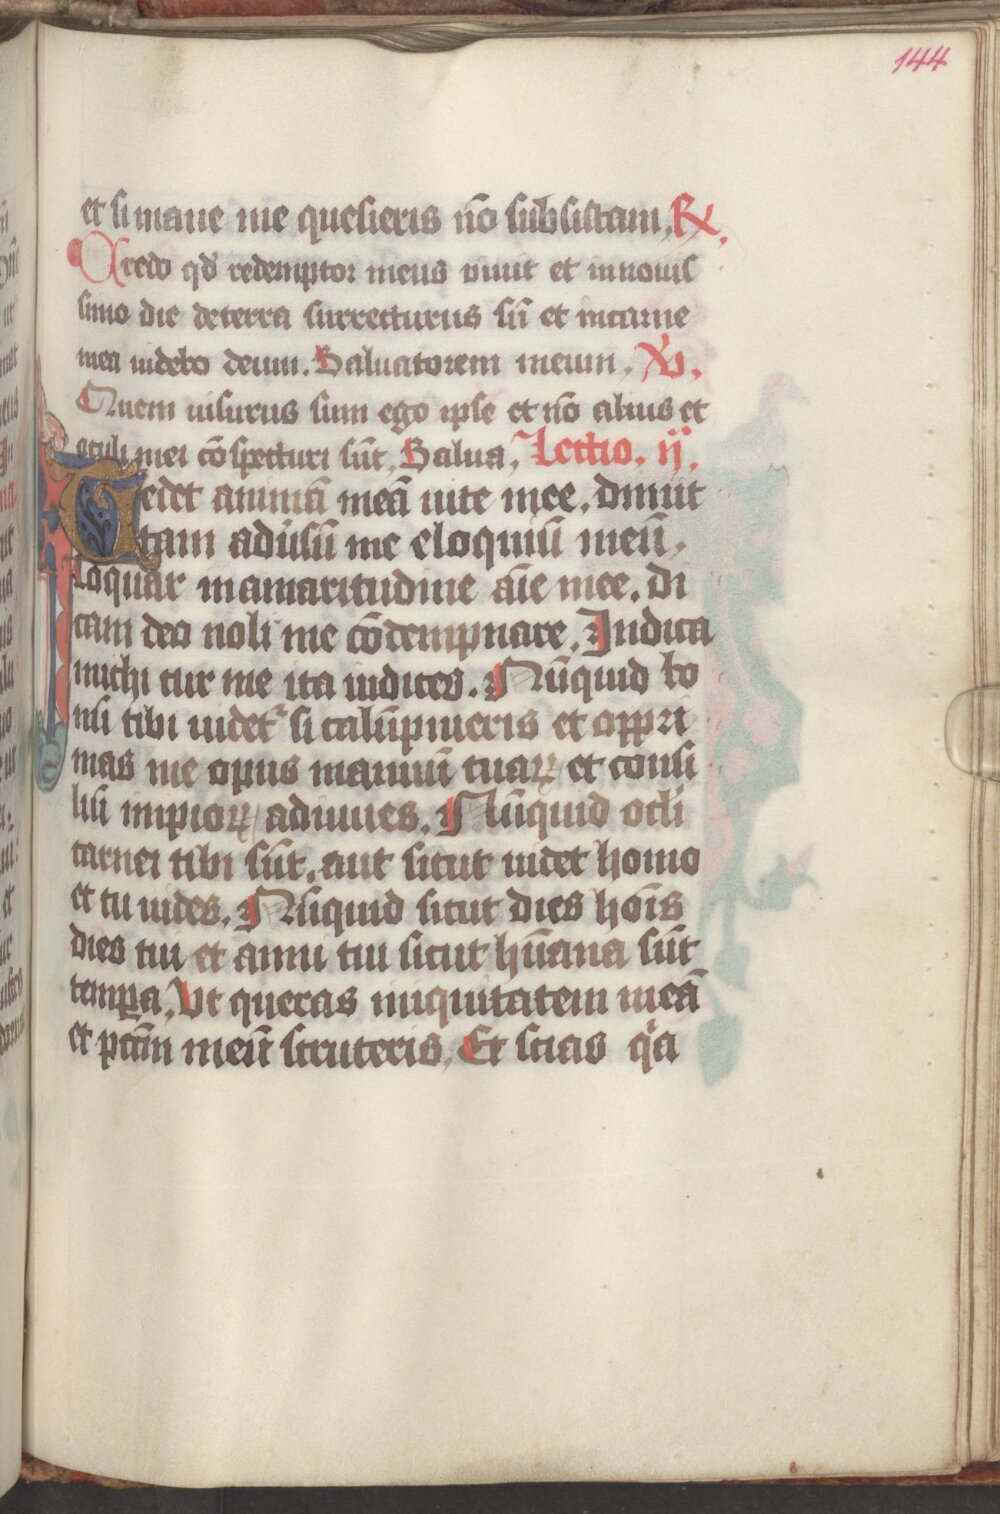 144
et si mane me quesieris nō subsistam. R℣.
Credo qd̄ redemptor meus viuit et innouis
simo die deterra surrecturus sū et incarne
mea uidebo deum. Saluatorem meum. V̄.
Quem uisurus sum ego ipse et nō alius et
oculi mei cōspecturi sūt. Salua. Lectio. ij.
Tedet animā meā uite mee. dimit
tam aduisū me eloquiū meū.
loquar inamaritudine aīe mee. Di
cam deo noli me cōdempnare. Indica
michi cur me ita iudices. Nūquid bo
nū tibi uidet᷑ si calūpnieris et oppri
mas me opus manuū tuaꝝ et consi
lisi impioꝝ adiuues. Nūquid oclī
carnei tibi sūt. aut sicut uidet homo
et tu uides. Nūquid sicut dies hoīs
dies tui et anni tui sicut hūana sūt
tempa. Vt queras iniquitatem meā
et pctm̄ meū scruteris. Et scias qͥa